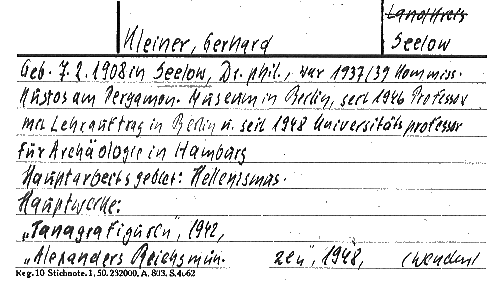 Landkreis
Kleiner, Gerhard Seelow
Geb. 7.2.1908 in Seelow, Dr. phil., war 1937/39 Kommiss.
Kustos am Pergamon-Museum in Berlin, seit 1946 Professor
m. Lehrauftrag in Berlin u. seit 1948 Universitätsprofessor
für Archäologie in Hamburg
Hauptarbeitsgebiet: Hellenismus.
Hauptwerke:
„Tanagrafiguren", 1942,
„Alexanders Reichsmün. zen", 1948, (wenden!
Reg. 10 Stichnote. 1, 50. 232000. A. 803. S. 4. 62